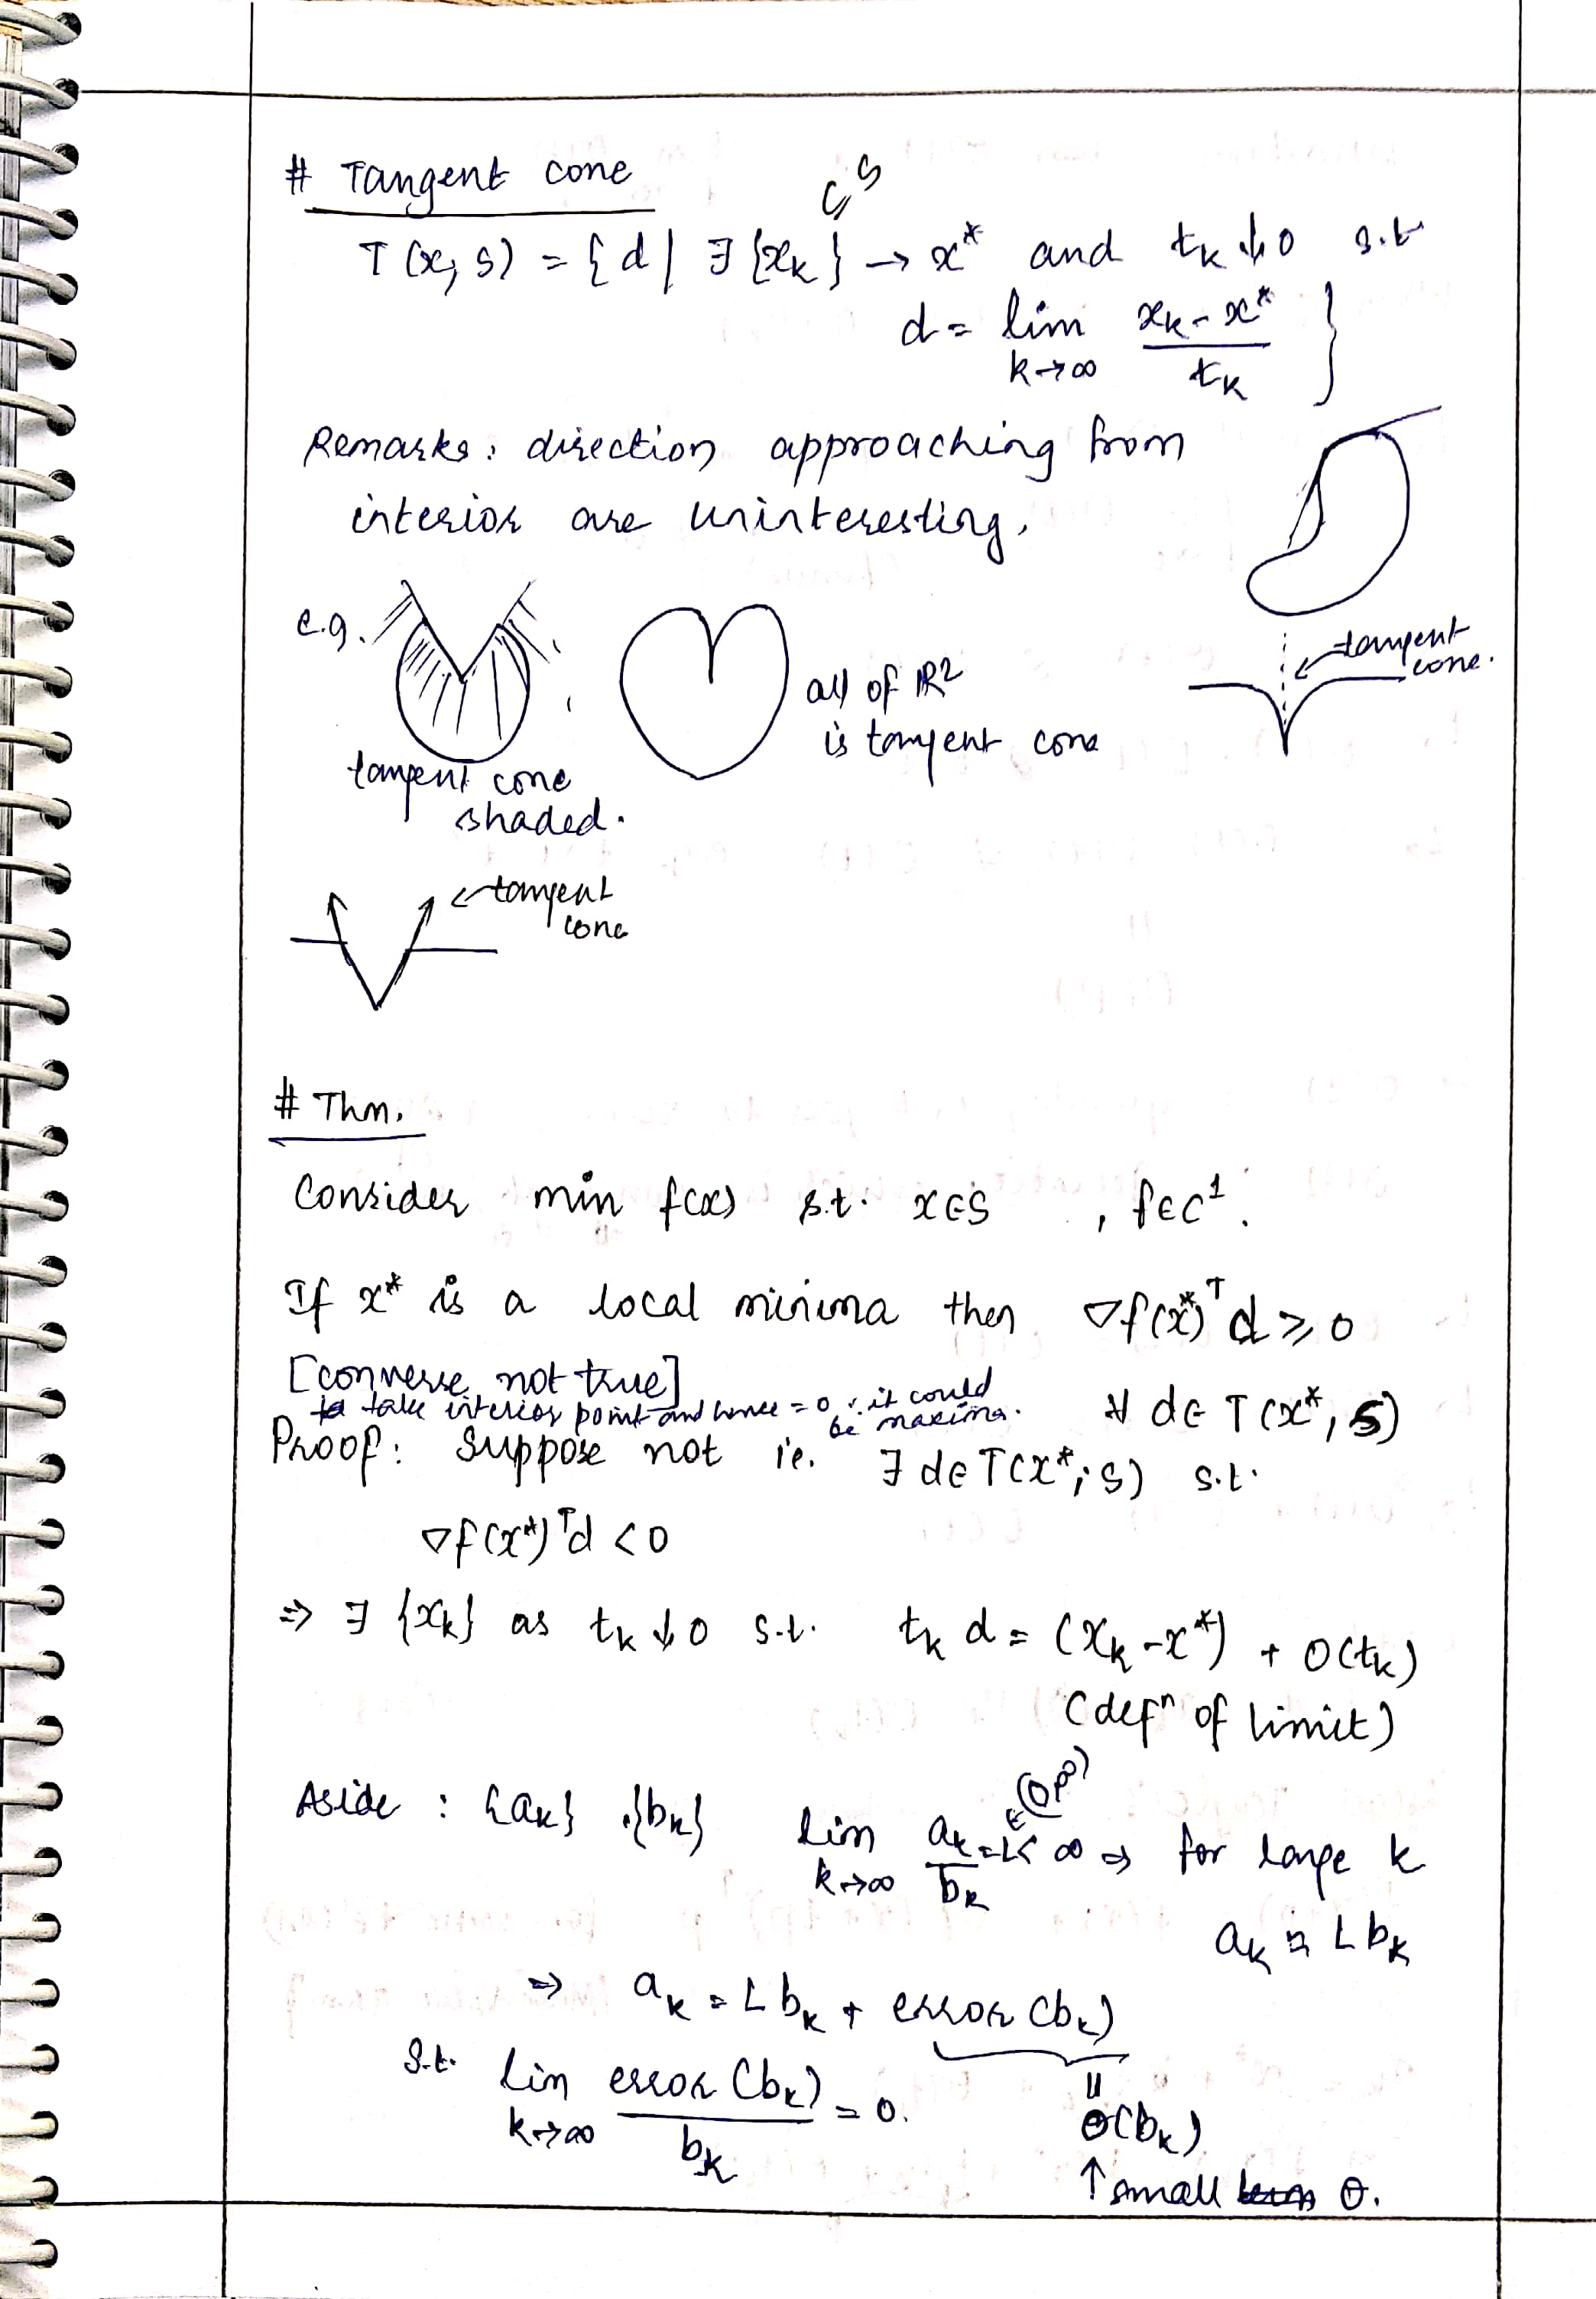 # Tangent cone
⊆ S
T(x, S) = { d | ∃ {xₖ} → x* and tₖ ↓ 0 s.t
d = lim_{k→∞} (xₖ - x*)/tₖ }
Remarks: direction approaching from
interior are uninteresting.
e.g.
all of ℝ²
is tangent cone
tangent cone.
tangent cone
shaded.
← tangent cone
# Thm.
Consider min f(x) s.t. x∈S , f∈C¹.
If x* is a local minima then ∇f(x*)ᵀd ≥ 0
[converse not true]
take interior point and hence = 0 ∵ it could be maxima.
∀ d∈T(x*, S)
Proof: Suppose not ie. ∃ d∈T(x*; S) s.t.
∇f(x*)ᵀd < 0
⇒ ∃ {xₖ} as tₖ ↓ 0 s.t. tₖ d = (xₖ - x*) + o(tₖ)
(defⁿ of limit)
Aside : {aₖ} , {bₖ} lim_{k→∞} aₖ/bₖ = L < ∞ ⇒ for large k
aₖ ≈ L bₖ
⇒ aₖ = L bₖ + error (bₖ)
s.t. lim_{k→∞} error (bₖ)/bₖ = 0.
o(bₖ)
↑ small o.